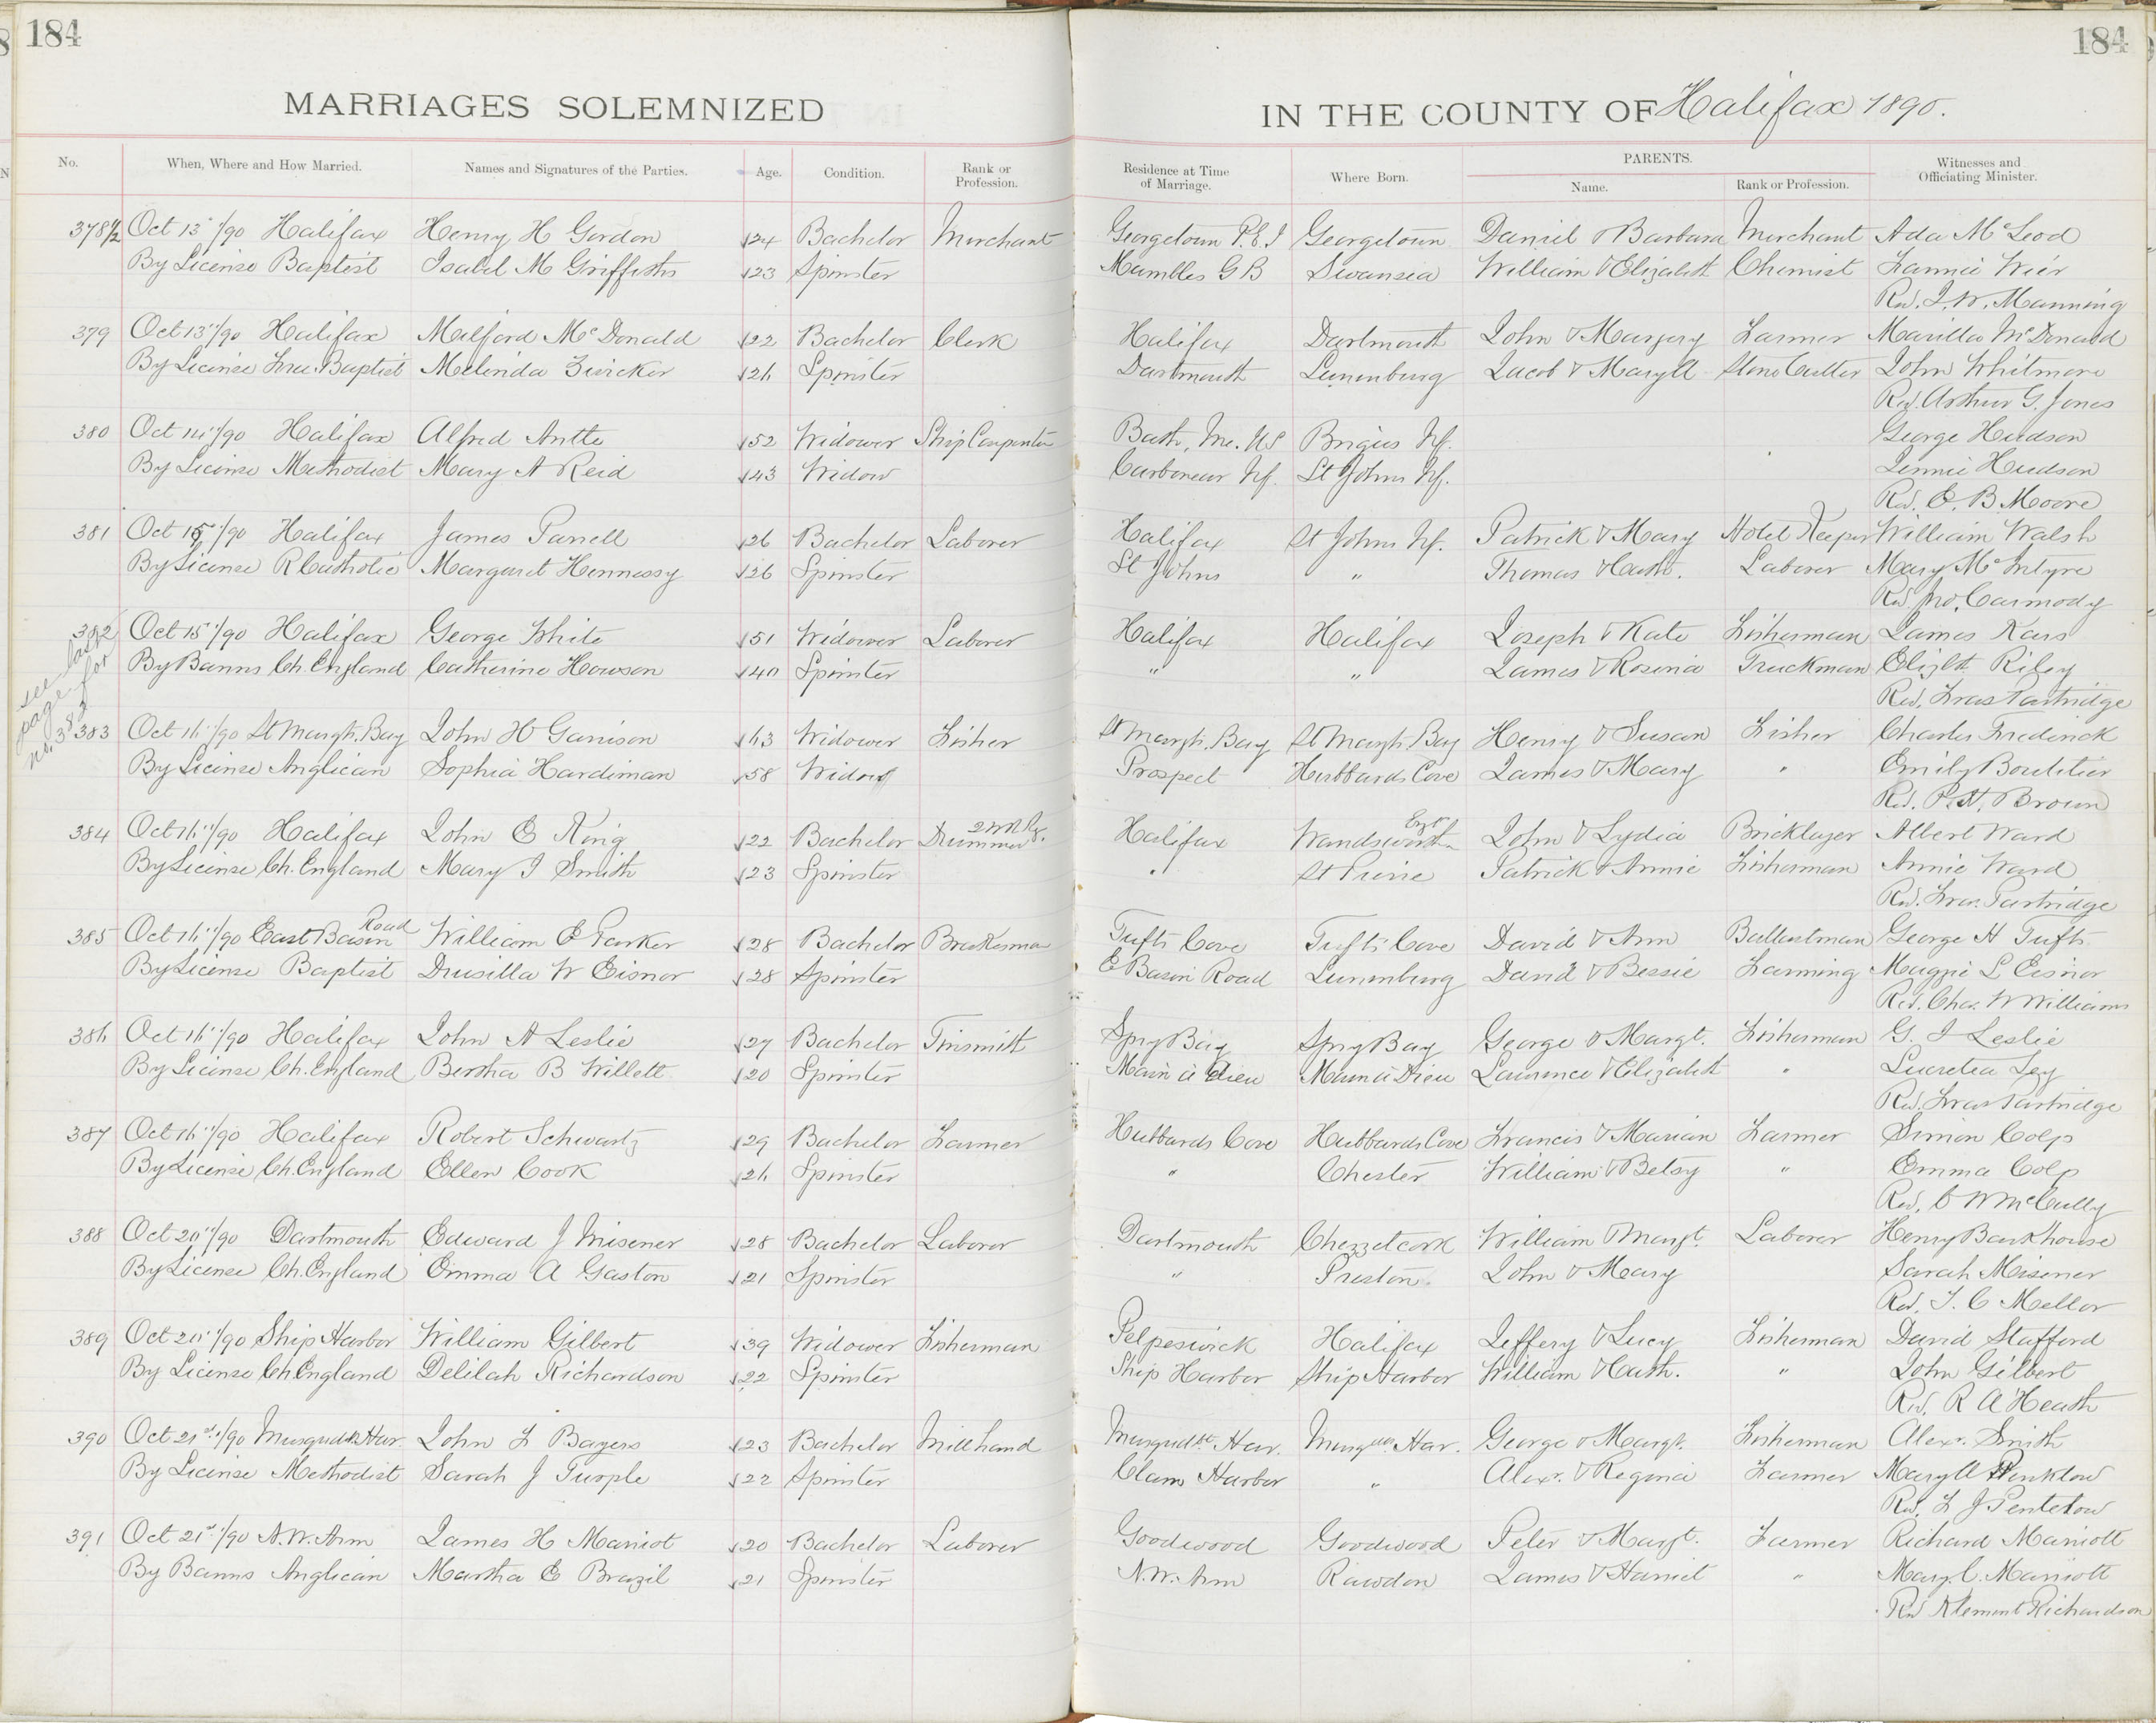 184
184
MARRIAGES SOLEMNIZED IN THE COUNTY OF Halifax 1890.
No. When, Where and How Married. Names and Signatures of the Parties. Age. Condition. Rank or Profession. Residence at Time of Marriage. Where Born. PARENTS. Name. Rank or Profession. Witnesses and Officiating Minister.
378½ Oct 13"/90 Halifax Henry H Gordon 24 Bachelor Merchant Georgetown P.E.I Georgetown Daniel & Barbara Merchant Ada McLeod
By License Baptist Isabel M Griffiths 23 Spinster Mumbles G B Swansea William & Elizabeth Chemist Fannie Weir
Rev. J. W. Manning
379 Oct 13"/90 Halifax Milford McDonald 22 Bachelor Clerk Halifax Dartmouth John & Margery Farmer Marilla McDonald
By License Free Baptist Melinda Zwicker 26 Spinster Dartmouth Lunenburg Jacob & Mary A Stone Cutter John Whitmore
Rev. Arthur G. Jones
380 Oct 14"/90 Halifax Alfred Antle 52 Widower Ship Carpenter Bath, Me. US Brigus Nf. George Hudson
By License Methodist Mary A Reid 43 Widow Carbonear Nf. St Johns Nf. Jennie Hudson
Rev. E. B Moore
381 Oct 15"/90 Halifax James Parrell 26 Bachelor Laborer Halifax St Johns Nf. Patrick & Mary Hotel Keeper William Walsh
By License R Catholic Margaret Hennessy 26 Spinster St Johns " Thomas & Cath. Laborer Mary McIntyre
Rev. Jno. Carmody
382 Oct 15"/90 Halifax George White 51 Widower Laborer Halifax Halifax Joseph & Kate Fisherman James Kars
By Banns Ch. England Catherine Howson 40 Spinster " " James & Rosina Truckman Elizbt Riley
Rev. Fras Partridge
see last page for no. 383
383 Oct 16"/90 St Margts. Bay John H Garrison 63 Widower Fisher St Margts. Bay St Margts Bay Henry & Susan Fisher Charles Fredrick
By License Anglican Sophia Hardiman 58 Widow Prospect Hubbards Cove James & Mary " Emily Boutilier
Rev. P. H. Brown
384 Oct 16"/90 Halifax John E King 22 Bachelor Drummer Halifax Wandsworth Engl. John & Lydia Bricklayer Albert Ward
By License Ch. England Mary J Smith 23 Spinster " St Pierre Patrick & Annie Fisherman Annie Ward
Rev. Fras. Partridge
385 Oct 16"/90 East Basin Road William E Parker 28 Bachelor Brakesman Tufts Cove Tufts Cove David & Ann Ballastman George H Tufts
By License Baptist Drusilla W Eisnor 28 Spinster E Basin Road Lunenburg David & Bessie Farming Maggie L Eisnor
Rev. Chas. W Williams
386 Oct 16"/90 Halifax John A Leslie 27 Bachelor Tinsmith Spry Bay Spry Bay George & Margt. Fisherman G. J Leslie
By License Ch. England Bertha B Willett 20 Spinster Main à Dieu Main à Dieu Laurence & Elizabeth " Lucretia Ley
Rev. Fras Partridge
387 Oct 16"/90 Halifax Robert Schwartz 29 Bachelor Farmer Hubbards Cove Hubbards Cove Francis & Marian Farmer Simon Colp
By License Ch. England Ellen Cook 26 Spinster " Chester William & Betsy " Emma Colp
Rev. C W McCully
388 Oct 20"/90 Dartmouth Edward J Misener 28 Bachelor Laborer Dartmouth Chezzetcook William & Margt. Laborer Henry Barkhouse
By License Ch. England Emma A Gaston 21 Spinster " Preston John & Mary Sarah Misener
Rev. T. C Mellor
389 Oct 20"/90 Ship Harbor William Gilbert 39 Widower Fisherman Petpeswick Halifax Jeffery & Lucy Fisherman David Stafford
By License Ch England Delilah Richardson 22 Spinster Ship Harbor Ship Harbor William & Cath. " John Gilbert
Rev. R A Heath
390 Oct 21st/90 Musqudbt Har. John F Bayers 23 Bachelor Millhand Musqudbt Har. Musqdbt. Har. George & Margt. Fisherman Alexr. Smith
By License Methodist Sarah J Turple 22 Spinster Clam Harbor " Alexr. & Regina Farmer Mary A
Rev. F J Pentelow
391 Oct 21st/90 N.W. Arm James H Marriot 20 Bachelor Laborer Goodwood Goodwood Peter & Margt. Farmer Richard Marriott
By Banns Anglican Martha E Brazil 21 Spinster N.W. Arm Rawdon James & Harriet " Mary C. Marriott
Rev Klement Richardson